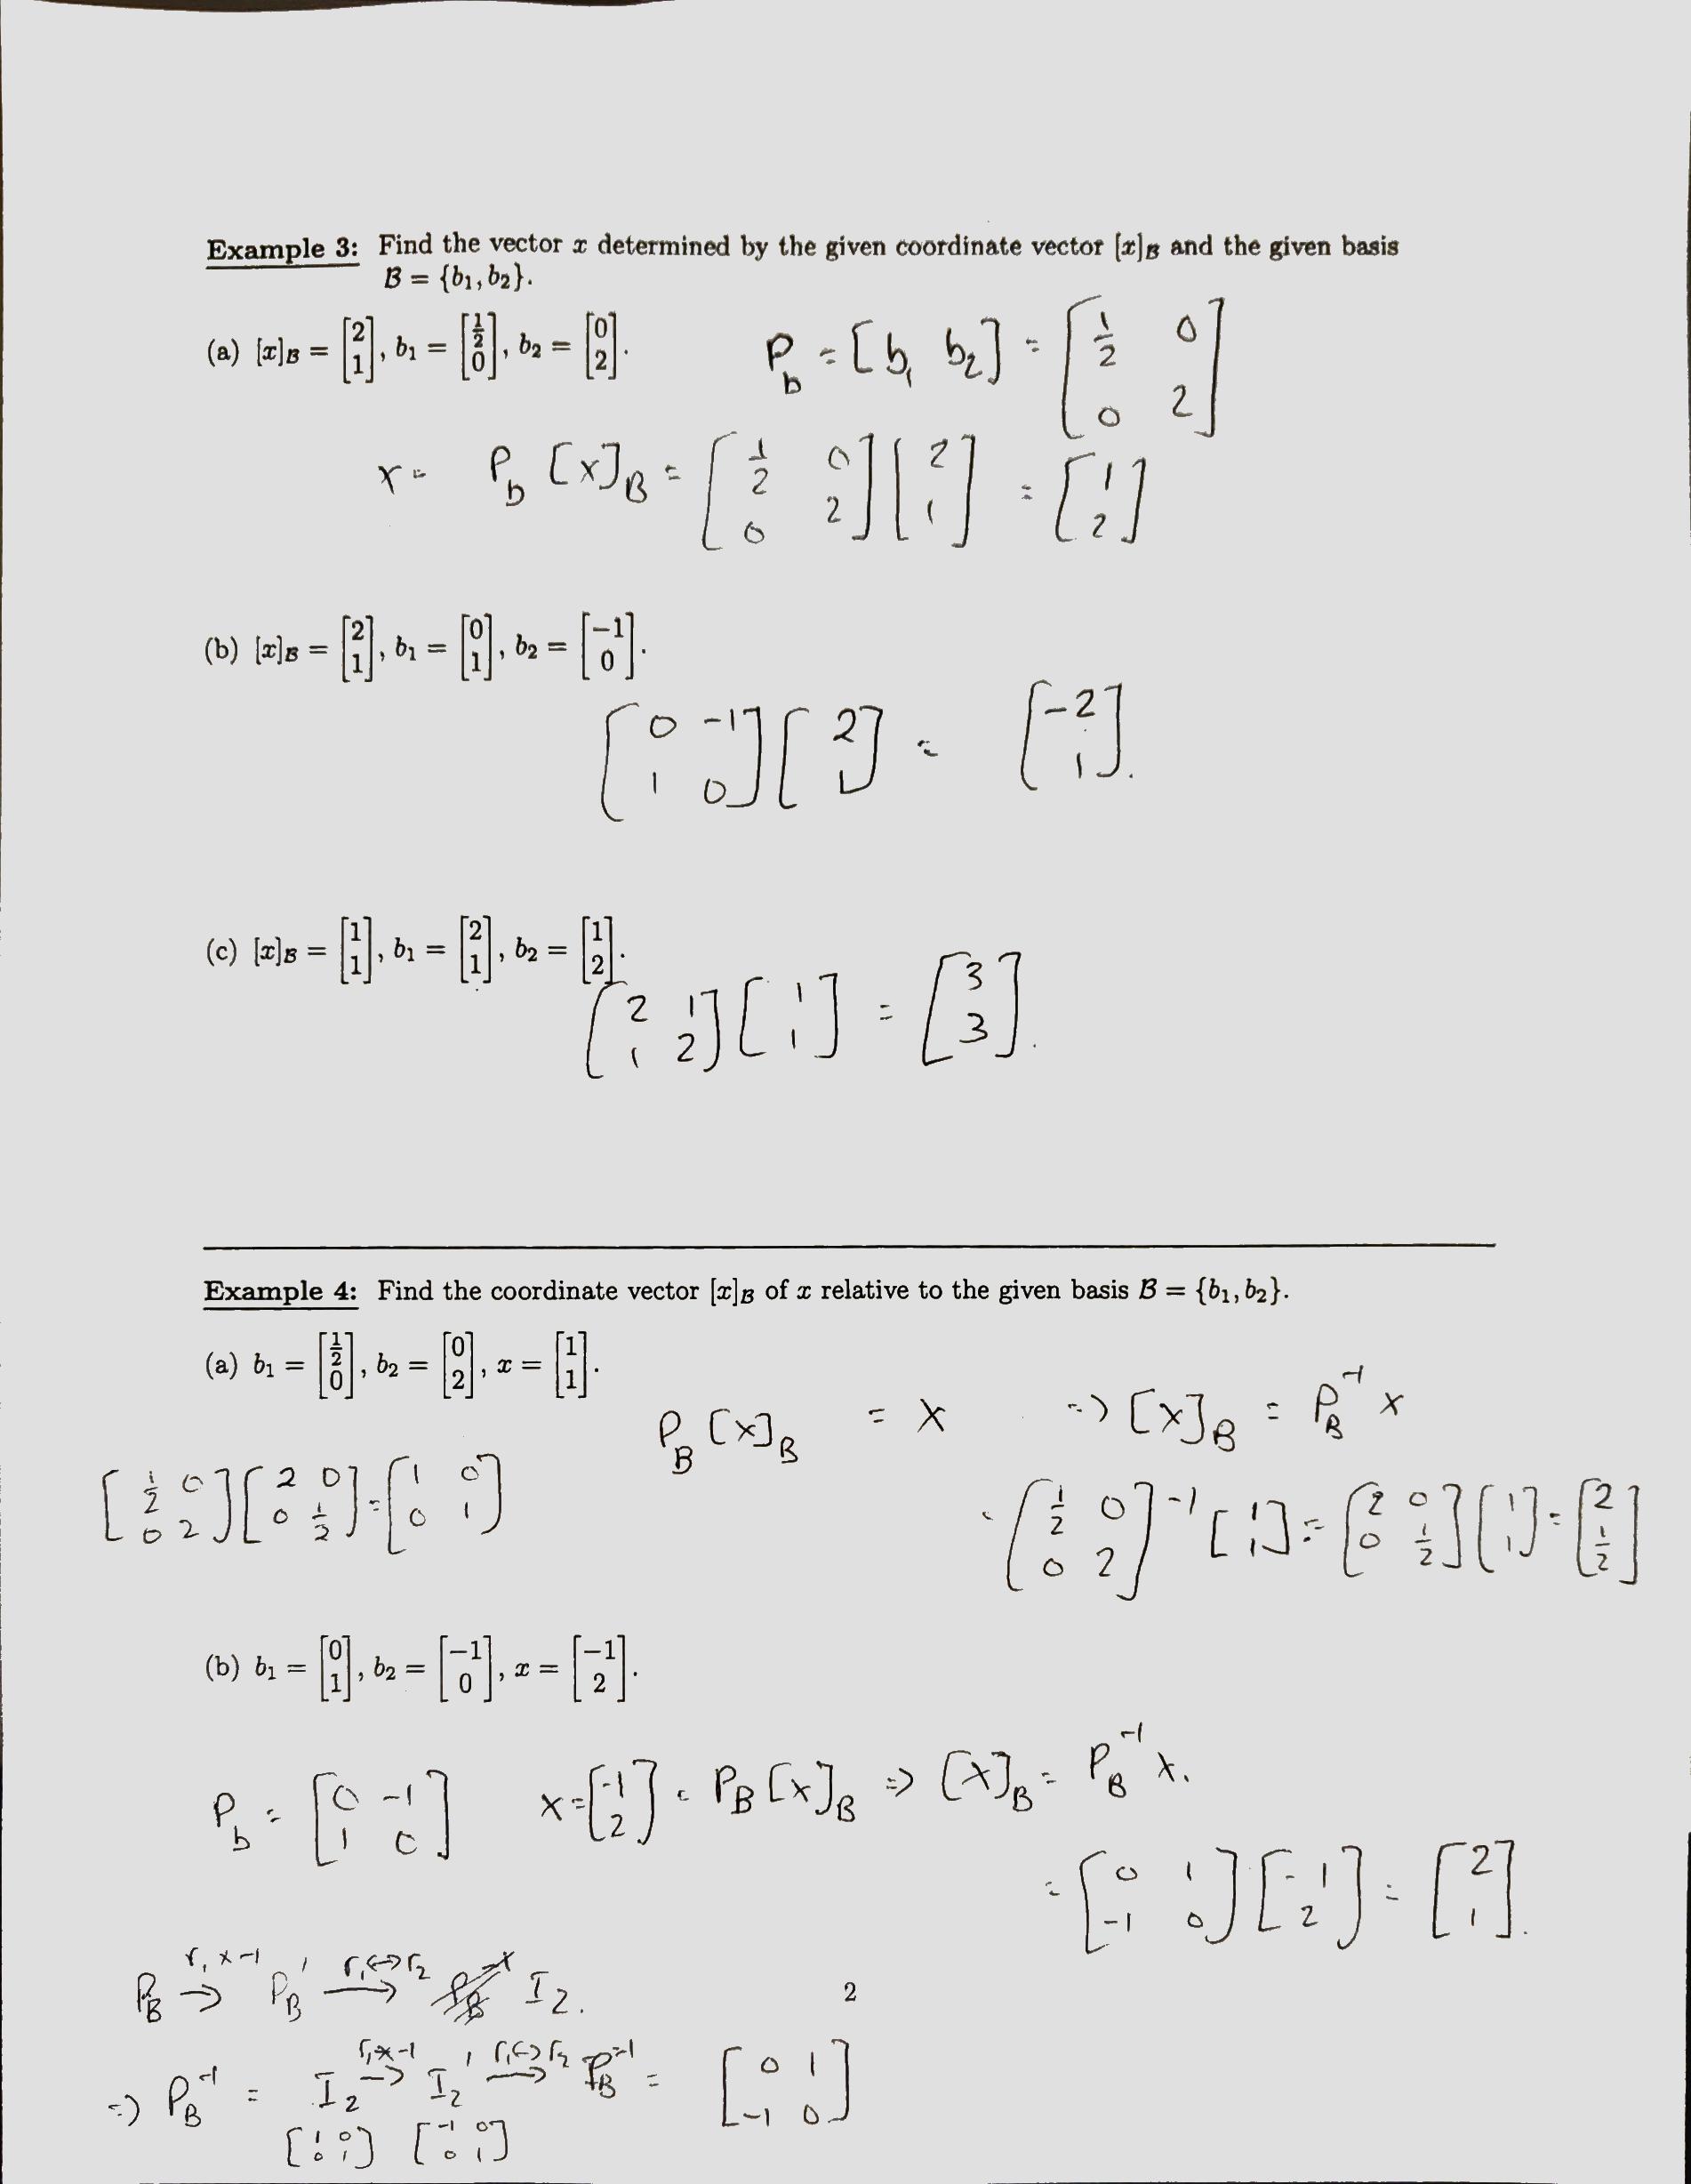 Example 3: Find the vector x determined by the given coordinate vector [x]_B and the given basis
B = {b₁, b₂}.
(a) [x]_B = [2; 1], b₁ = [1/2; 0], b₂ = [0; 2].
P_b = [b₁ b₂] = [1/2 0; 0 2]
x = P_b [x]_B = [1/2 0; 0 2][2; 1] = [1; 2]
(b) [x]_B = [2; 1], b₁ = [0; 1], b₂ = [-1; 0].
[0 -1; 1 0][2; 1] = [-2; 1].
(c) [x]_B = [1; 1], b₁ = [2; 1], b₂ = [1; 2].
[2 1; 1 2][1; 1] = [3; 3].
Example 4: Find the coordinate vector [x]_B of x relative to the given basis B = {b₁, b₂}.
(a) b₁ = [1/2; 0], b₂ = [0; 2], x = [1; 1].
P_B [x]_B = x => [x]_B = P_B⁻¹ x
[1/2 0; 0 2][2 0; 0 1/2] = [1 0; 0 1]
= [1/2 0; 0 2]⁻¹ [1; 1] = [2 0; 0 1/2][1; 1] = [2; 1/2]
(b) b₁ = [0; 1], b₂ = [-1; 0], x = [-1; 2].
P_b = [0 -1; 1 0] x = [-1; 2] = P_B [x]_B => [x]_B = P_B⁻¹ x.
= [0 1; -1 0][-1; 2] = [2; 1].
P_B →(r₁ x -1) P_B' →(r₁ ↔ r₂) I₂.
2
=> P_B⁻¹ = I₂ →(r₁ x -1) I₂' →(r₁ ↔ r₂) P_B⁻¹ = [0 1; -1 0]
[1 0; 0 1] [-1 0; 0 1]